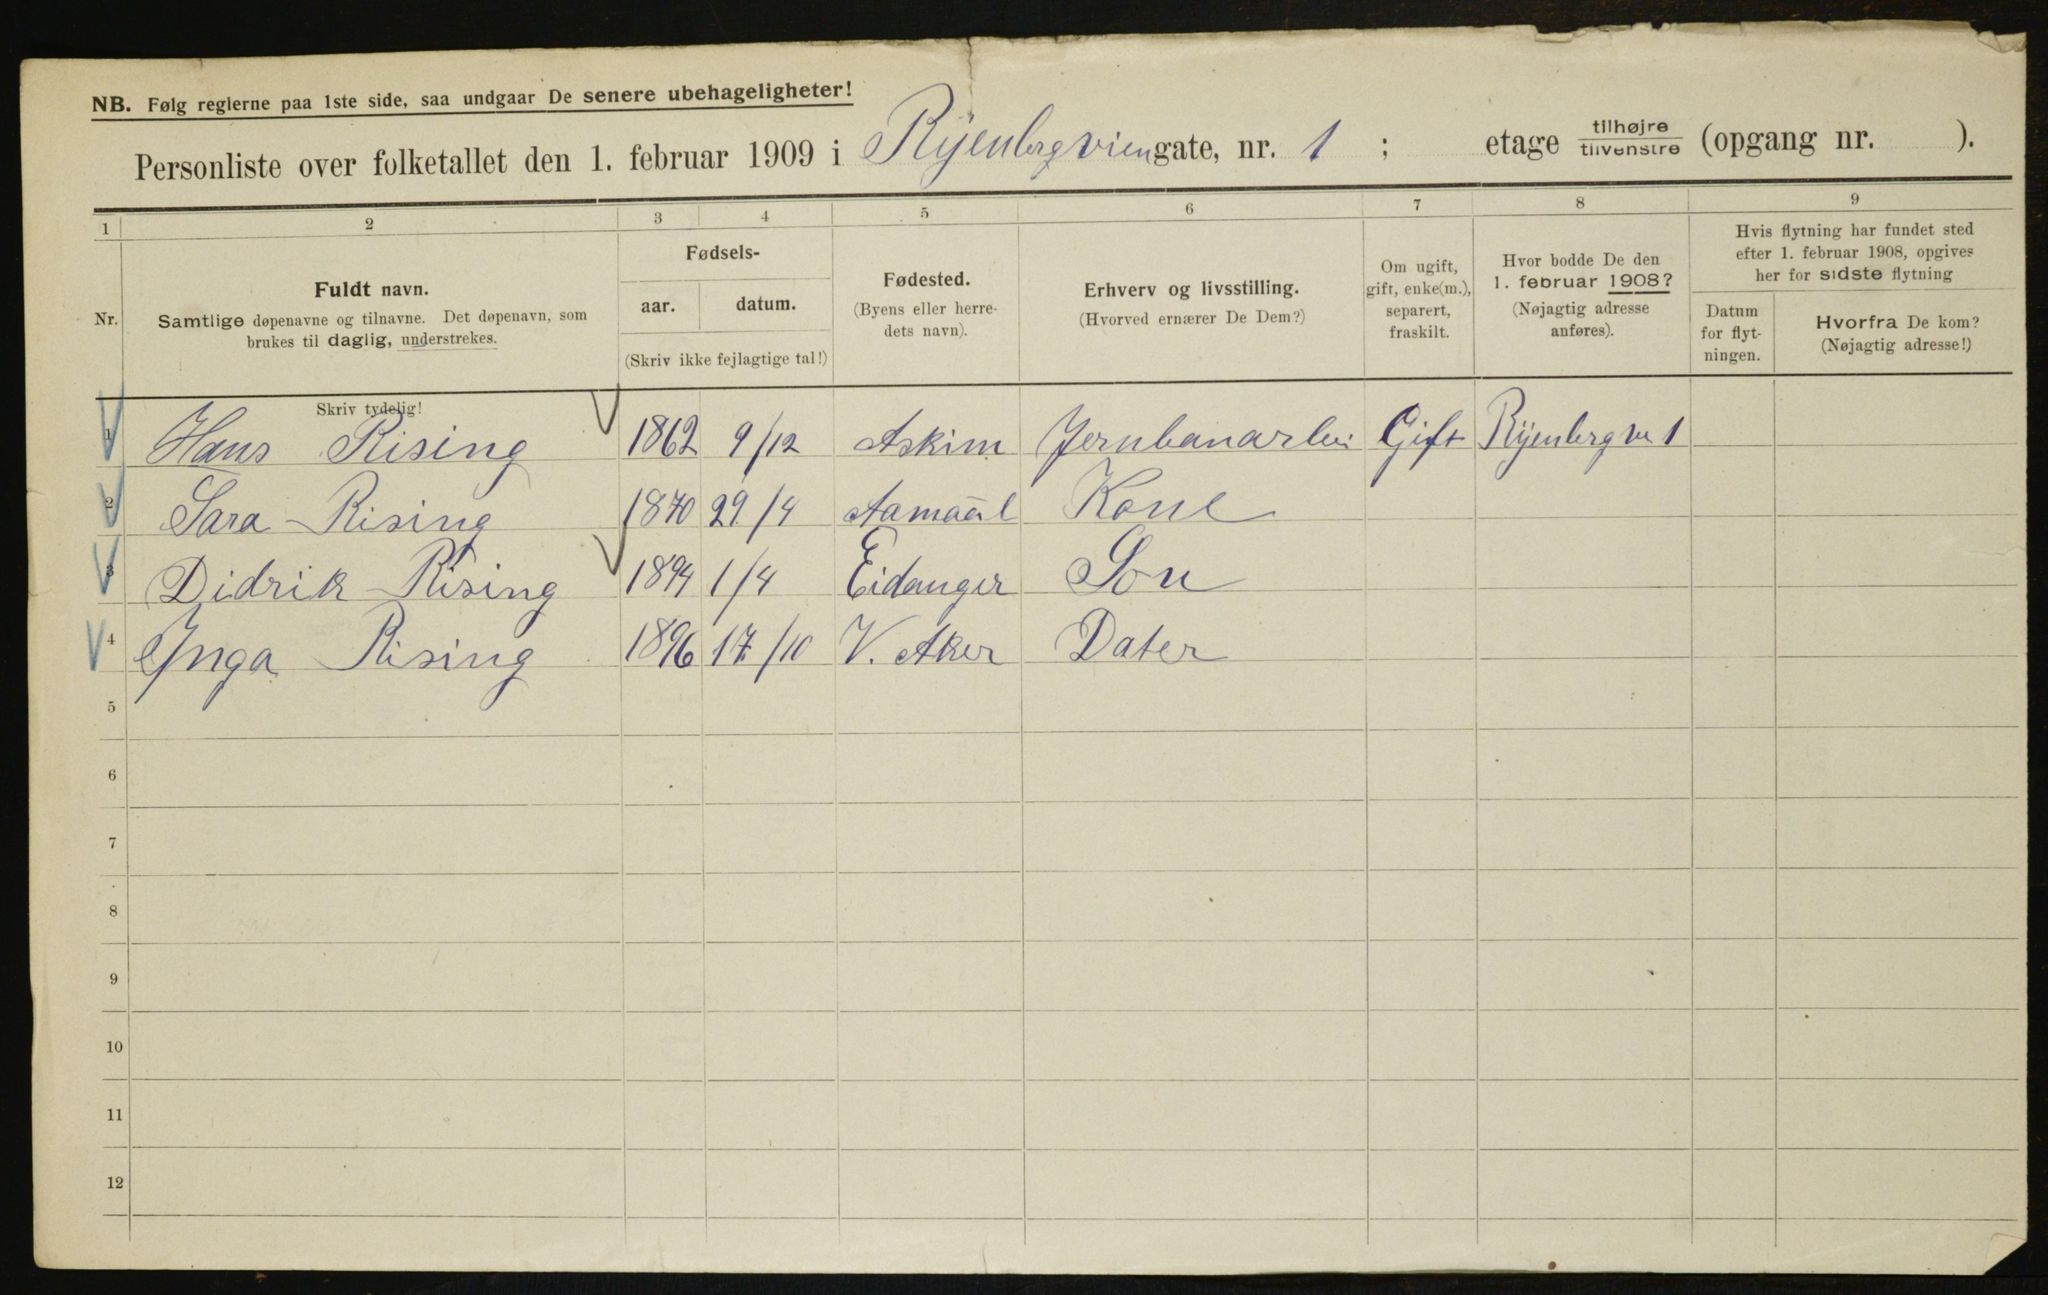 NB. Følg reglerne paa 1ste side, saa undgaar De senere ubehageligheter!
Personliste over folketallet den 1. februar 1909 i Ryenbergvien gate, nr. 1 ; etage tilhøjre tilvenstre (opgang nr. ).
1 2 3 4 5 6 7 8 9
Nr.
Fuldt navn.
Samtlige døpenavne og tilnavne. Det døpenavn, som
brukes til daglig, understrekes.
Skriv tydelig!
Fødsels-
aar. datum.
(Skriv ikke fejlagtige tal!)
Fødested.
(Byens eller herre-
dets navn).
Erhverv og livsstilling.
(Hvorved ernærer De Dem?)
Om ugift,
gift, enke(m.),
separert,
fraskilt.
Hvor bodde De den
1. februar 1908?
(Nøjagtig adresse
anføres).
Hvis flytning har fundet sted
efter 1. februar 1908, opgives
her for sidste flytning
Datum
for flyt-
ningen.
Hvorfra De kom?
(Nøjagtig adresse!)
1 Hans Rising 1862 9/12 Askim Jernbanarbei Gift Ryenbergve 1
2 Sara Rising 1870 29/4 Aamaal Kone
3 Didrik Rising 1894 1/4 Eidanger Son
4 Ynga Rising 1896 17/10 V. Aker Dater
5
6
7
8
9
10
11
12